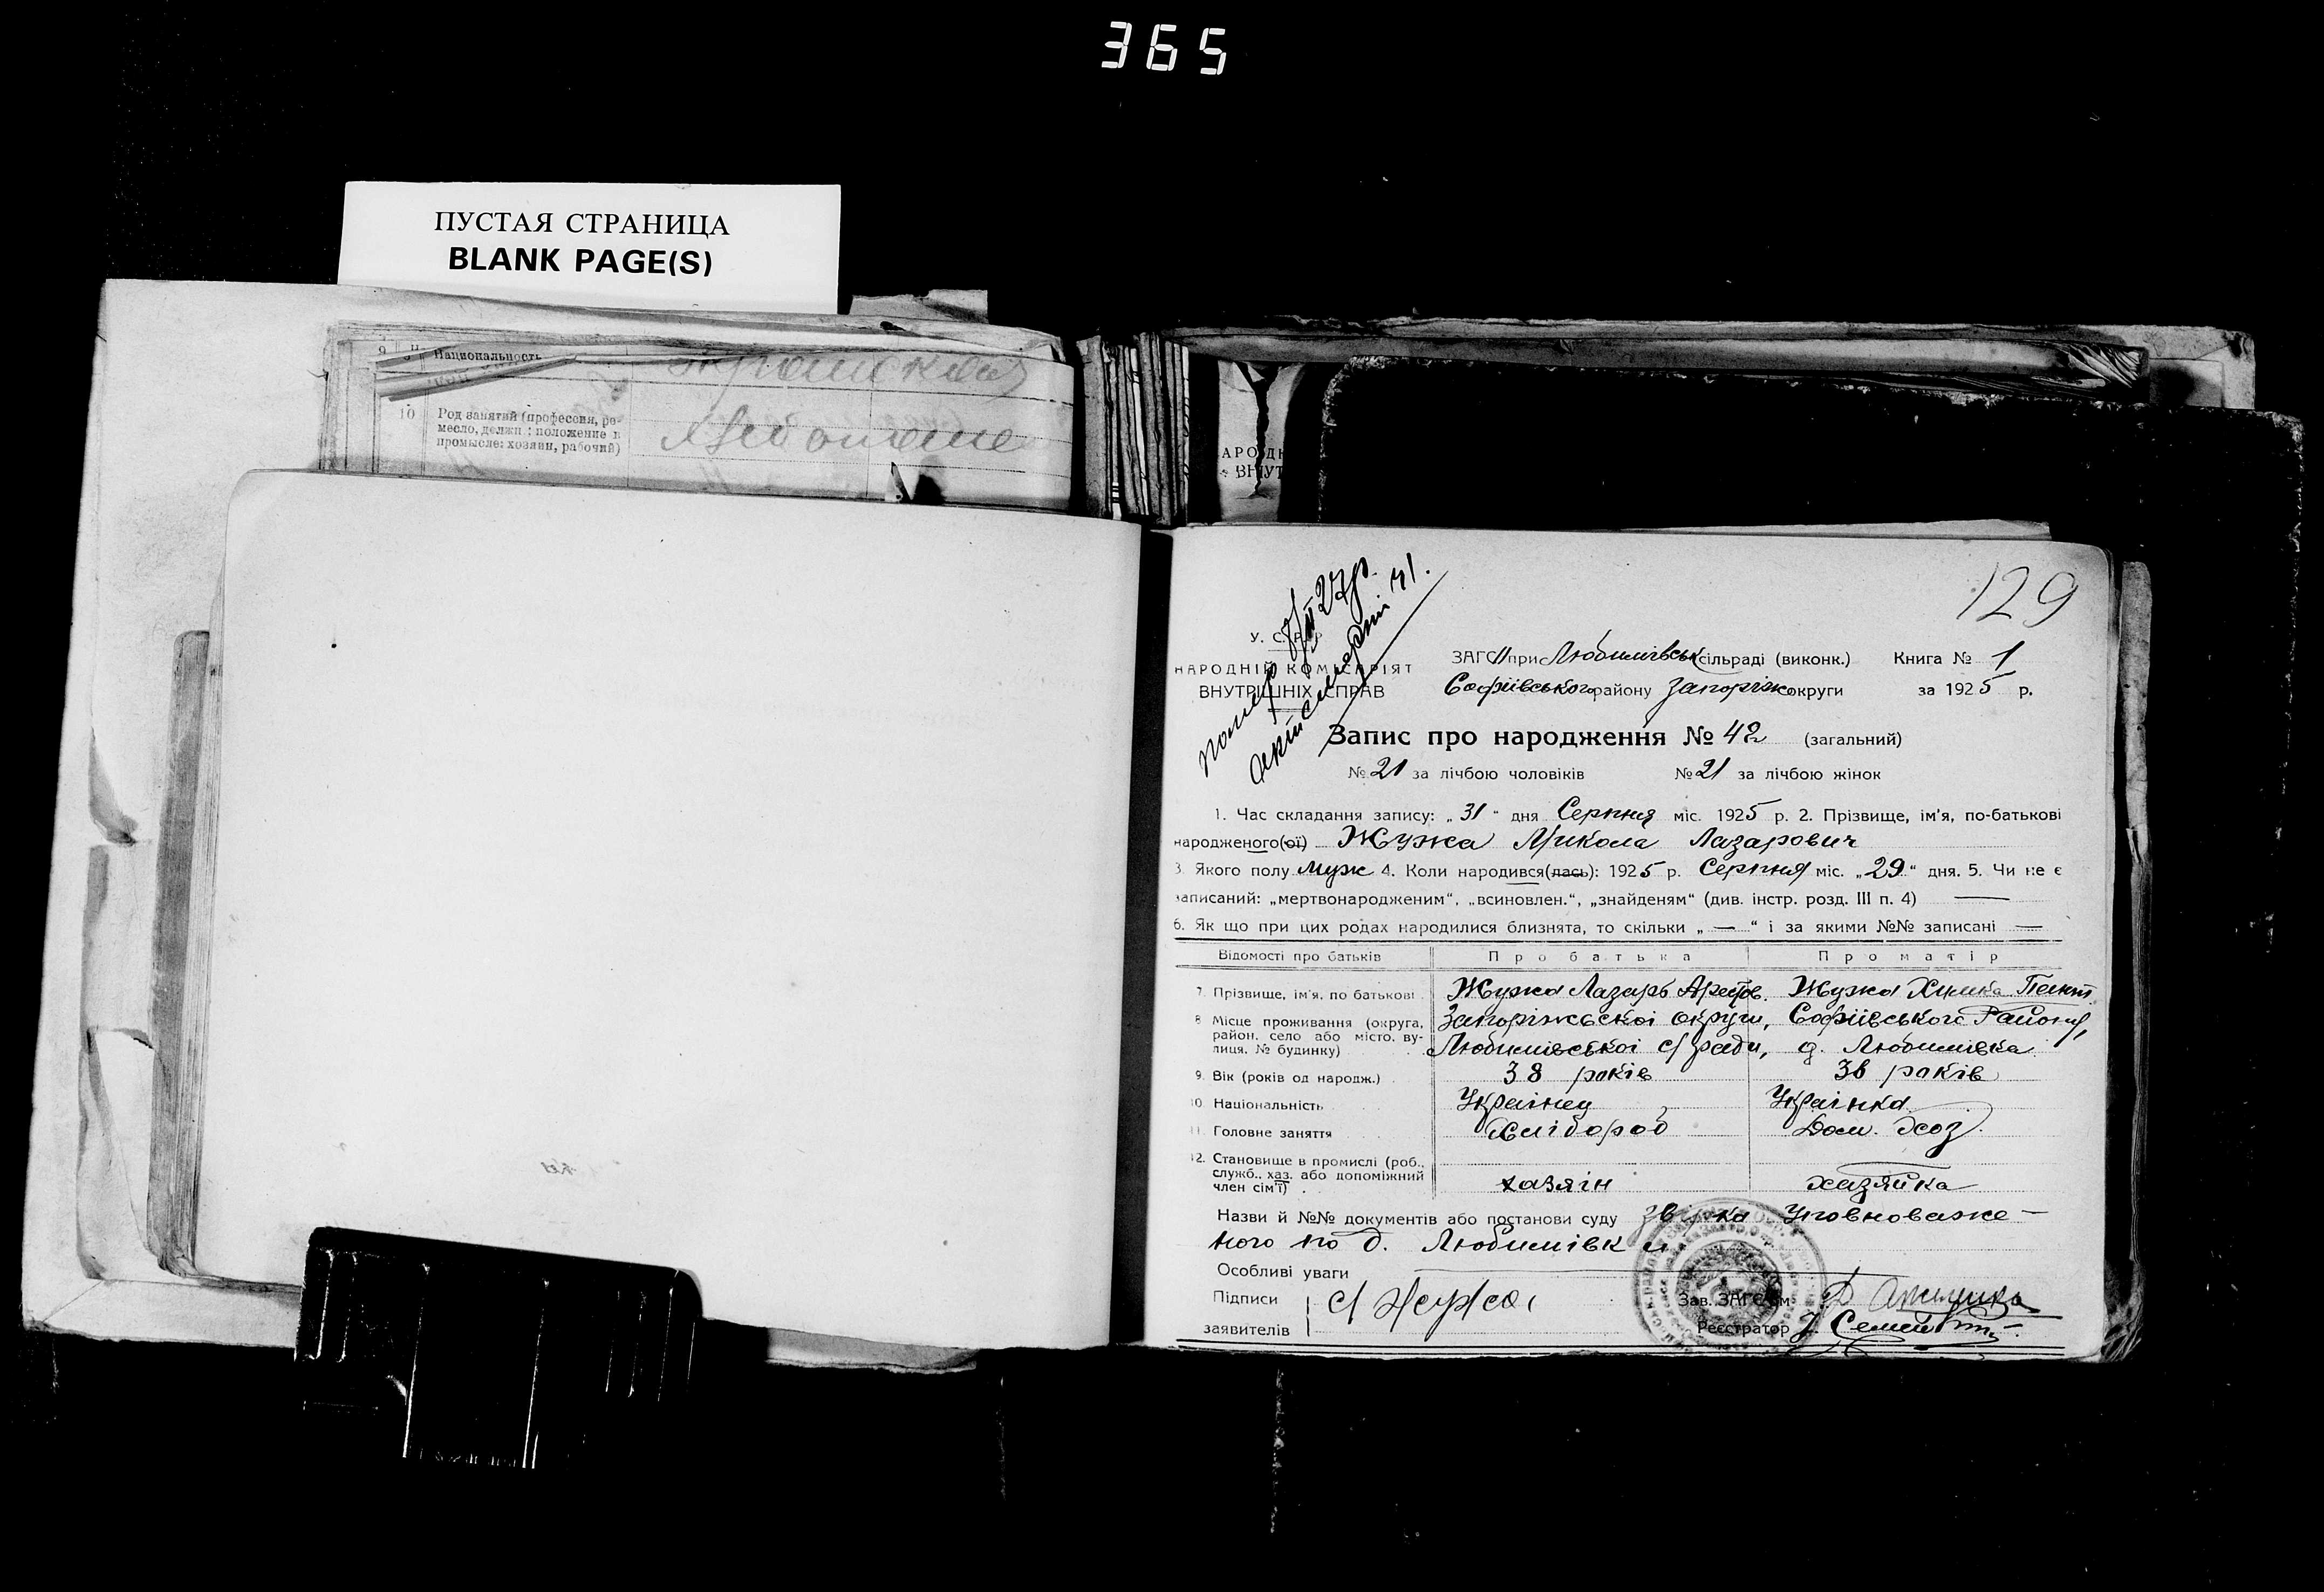 365
ПУСТАЯ СТРАНИЦА
BLANK PAGE(S)
9 Национальность
10 Род занятий (профессия, ре-
месло, должн.: положение в
промысле: хозяин, рабочий)
АРОДН
ВНУТ
129
помер 8/II 27р.
акт смерті 41.
У. С. Р. Р
НАРОДНІЙ КОМІСАРІЯТ
ВНУТРІШНІХ СПРАВ
ЗАГС при Любимівськ сільраді (виконк.) Книга № 1
Софіївського району Запоріж округи за 1925 р.
Запис про народження № 42 (загальний)
№ 21 за лічбою чоловіків № 21 за лічбою жінок
1. Час складання запису: „31“ дня Серпня міс. 1925 р. 2. Прізвище, ім'я, по-батькові
народженого(ої) Жужа Микола Лазарович
3. Якого полу муж 4. Коли народився(лась): 1925 р. Серпня міс. „29“ дня. 5. Чи не є
записаний: „мертвонародженим“, „всиновлен.“, „знайденям“ (див. інстр. розд. III п. 4) —
6. Як що при цих родах народилися близнята, то скільки „—“ і за якими №№ записані —
Відомості про батьків Про батька Про матір
7. Прізвище, ім'я, по батькові Жужа Лазарь Жужа Химка
8 Місце проживання (округа, Запоріжської округи, Софіївського Району,
район, село або місто, ву-
лиця, № будинку) Любимівської с/ради, д. Любимівка
9. Вік (років од народж.) 38 років 36 років
10. Національність Українец Українка
11. Головне заняття Хлібороб Дом. Хоз.
12. Становище в промислі (роб.,
служб., хаз. або допоміжний
член сім'ї) хазяін хазяйка
Назви й №№ документів або постанови суду Уповноваже-
ного по д. Любимівк
Особливі уваги
Підписи Жужа Зав. ЗАГС'ом
заявителів Реєстратор